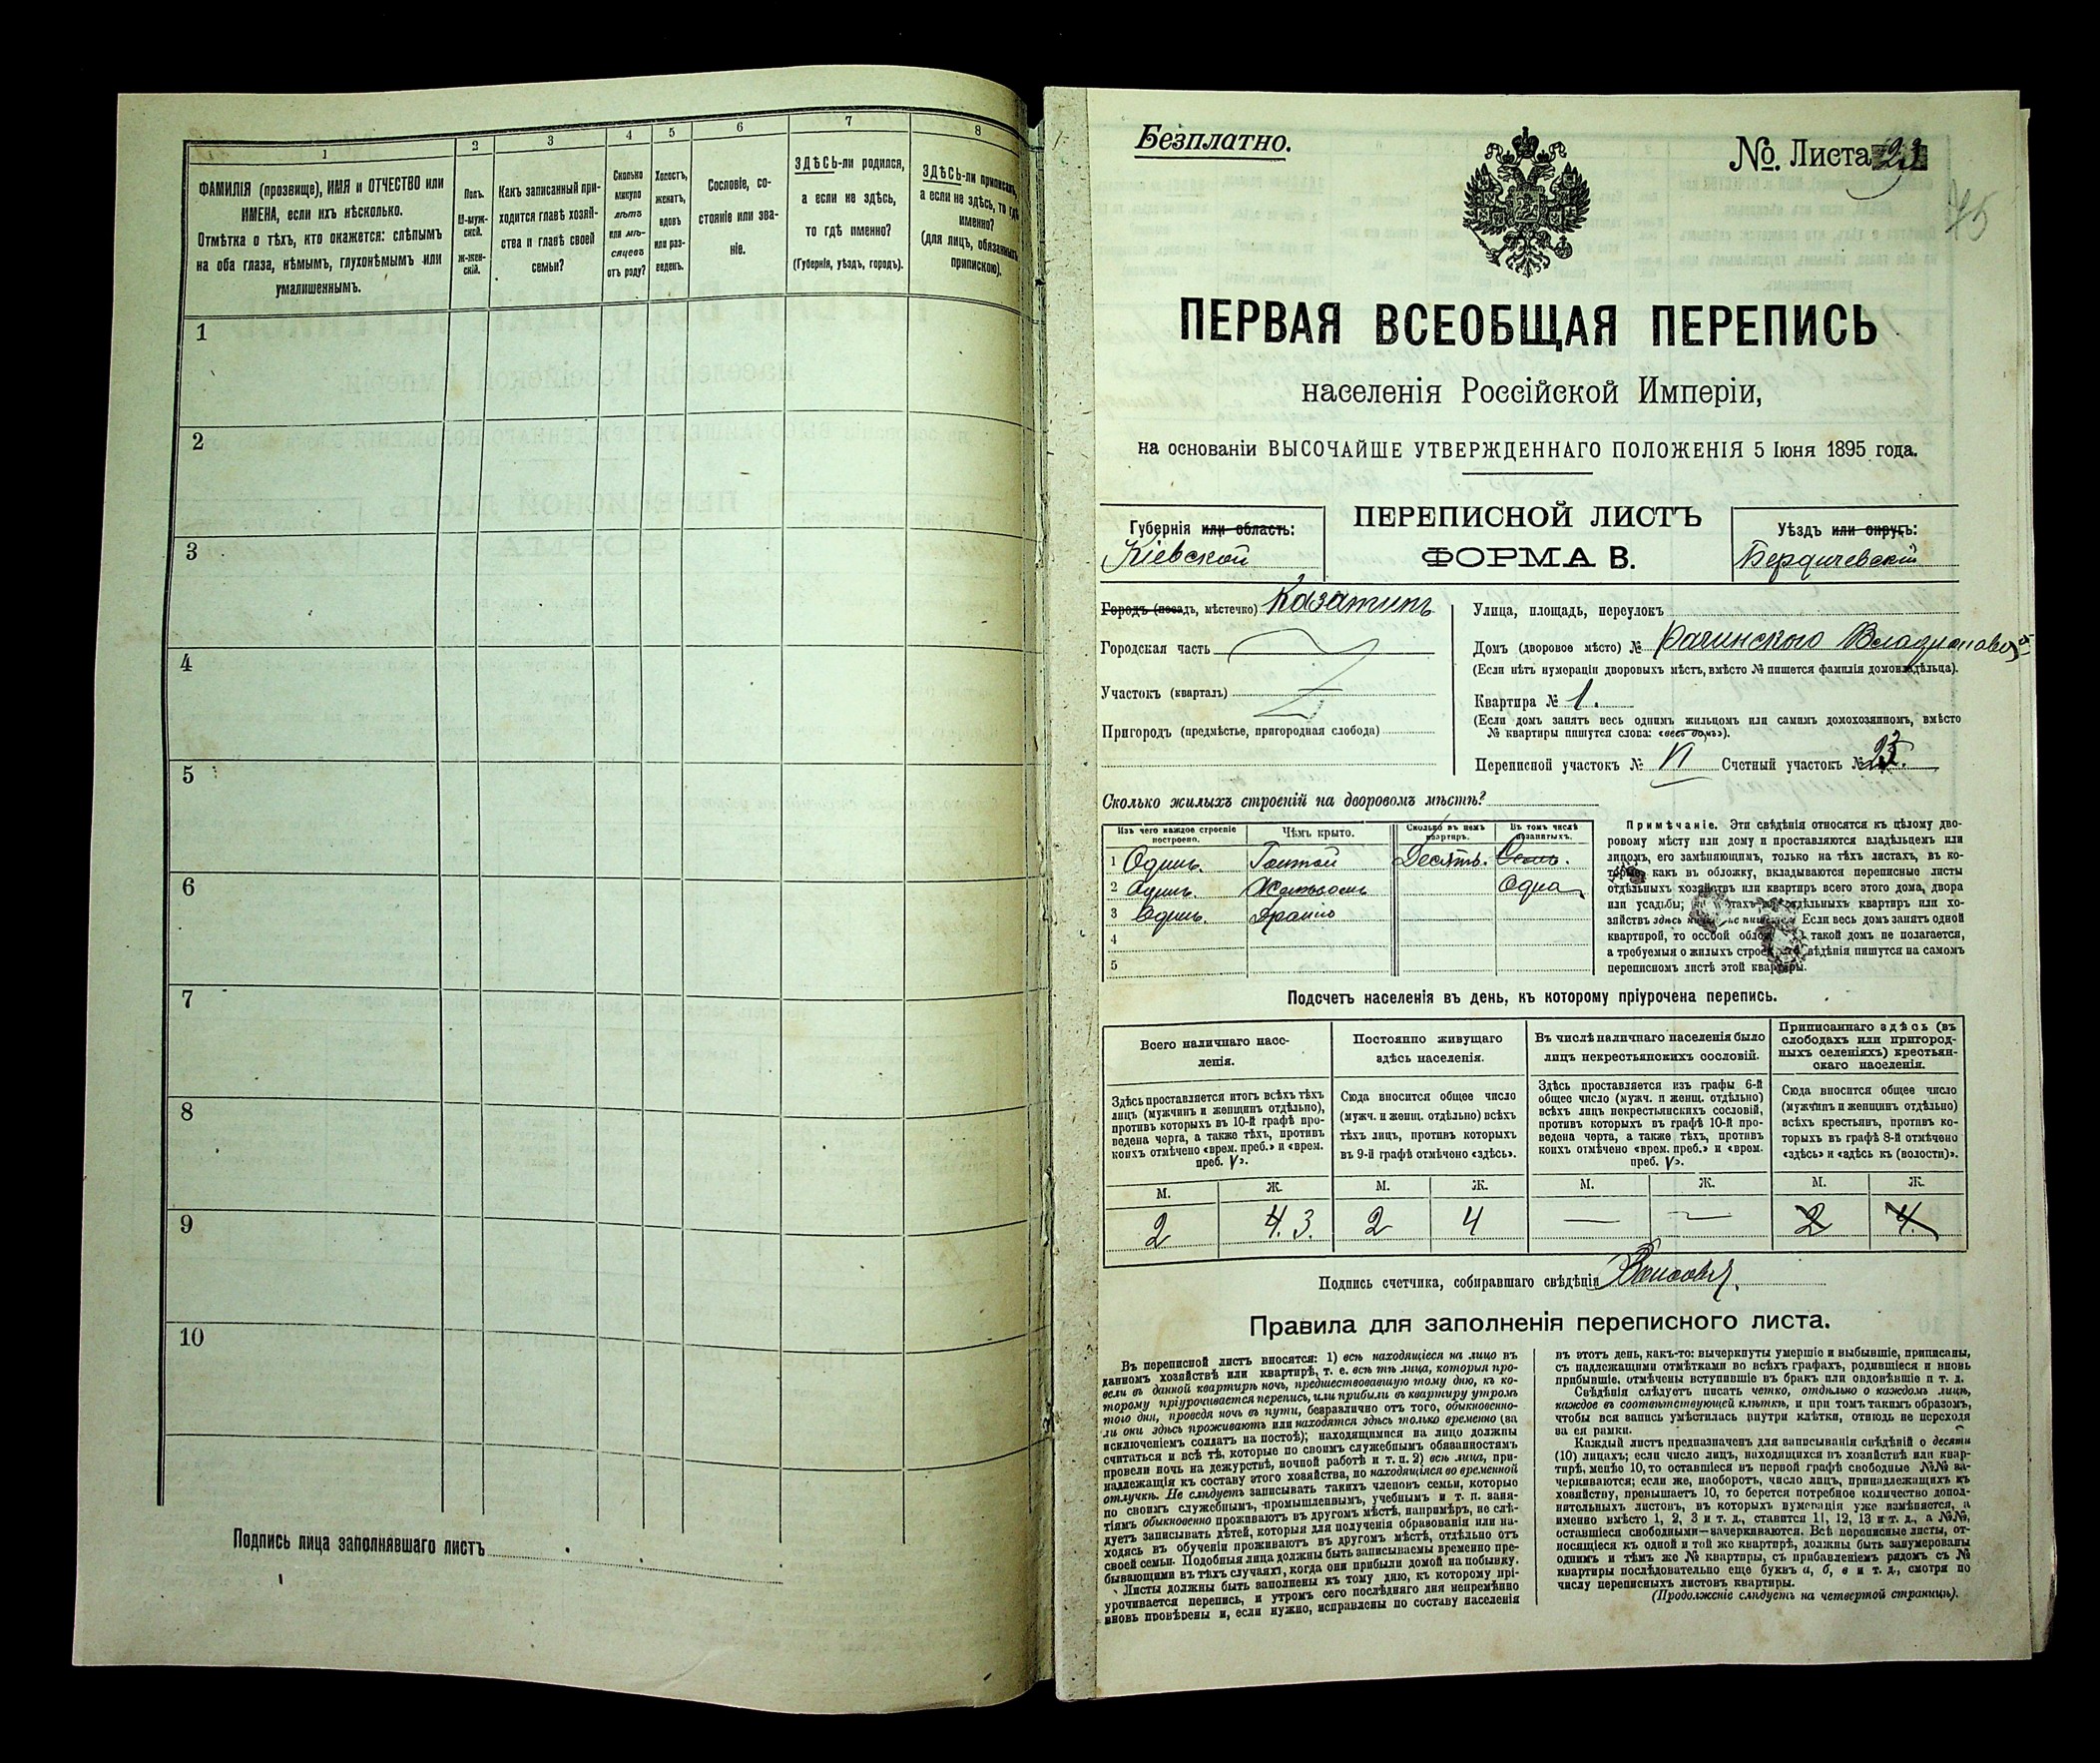 1
2
3
4
5
6
7
8
ФАМИЛІЯ (прозвище), ИМЯ и ОТЧЕСТВО или
ИМЕНА, если ихъ нѣсколько.
Отмѣтка о тѣхъ, кто окажется: слѣпымъ
на оба глаза, нѣмымъ, глухонѣмымъ или
умалишеннымъ.
Полъ.
М-муж-
ской.
Ж-жен-
скій.
Какъ записанный при-
ходится главѣ хозяй-
ства и главѣ своей
семьи?
Сколько
минуло
лѣтъ
или мѣ-
сяцевъ
отъ роду?
Холостъ,
женатъ,
вдовъ
или раз-
веденъ.
Сословіе, со-
стояніе или зва-
ніе.
ЗДѢСЬ-ли родился,
а если не здѣсь,
то гдѣ именно?
(Губернія, уѣздъ, городъ).
ЗДѢСЬ-ли приписанъ,
а если не здѣсь, то гдѣ
именно?
(для лицъ, обязанныхъ
припискою).
1
2
3
4
5
6
7
8
9
10
Подпись лица заполнявшаго листъ
Безплатно.
№ Листа 23
75
ПЕРВАЯ ВСЕОБЩАЯ ПЕРЕПИСЬ
населенія Россійской Имперіи,
на основаніи ВЫСОЧАЙШЕ УТВЕРЖДЕННАГО ПОЛОЖЕНІЯ 5 Іюня 1895 года.
Губернія или область:
Кіевской
ПЕРЕПИСНОЙ ЛИСТЪ
ФОРМА В.
Уѣздъ или округъ:
Бердичевскій
Городъ (посадъ, мѣстечко) Казатинъ
Городская часть
Участокъ (кварталъ)
Пригородъ (предмѣстье, пригородная слобода)
Улица, площадь, переулокъ
Домъ (дворовое мѣсто) № Рачинского
(Если нѣтъ нумераціи дворовыхъ мѣстъ, вмѣсто № пишется фамилія домовладѣльца).
Квартира № 1.
(Если домъ занятъ весь однимъ жильцомъ или самимъ домохозяиномъ, вмѣсто
№ квартиры пишутся слова: «весь домъ»).
Переписной участокъ № VI Счетный участокъ №
Сколько жилыхъ строеній на дворовомъ мѣстѣ?
Изъ чего каждое строеніе
построено.
Чѣмъ крыто.
Сколько въ немъ
квартиръ.
Въ томъ числѣ
незанятыхъ.
1 Одинъ. Гонтой Десять.
2 Одинъ. Одна
3 Одинъ.
4
5
Примѣчаніе. Эти свѣдѣнія относятся къ цѣлому дво-
ровому мѣсту или дому и проставляются владѣльцемъ или
лицомъ, его замѣняющимъ, только на тѣхъ листахъ, въ ко-
торые, какъ въ обложку, вкладываются переписные листы
отдѣльныхъ хозяйствъ или квартиръ всего этого дома, двора
или усадьбы; отдѣльныхъ квартиръ или хо-
зяйствъ здѣсь Если весь домъ занятъ одной
квартирой, то особой такой домъ не полагается,
а требуемыя о жилыхъ свѣдѣнія пишутся на самомъ
переписномъ листѣ этой квартиры.
Подсчетъ населенія въ день, къ которому пріурочена перепись.
Всего наличнаго насе-
ленія.
Постоянно живущаго
здѣсь населенія.
Въ числѣ наличнаго населенія было
лицъ некрестьянскихъ сословій.
Приписаннаго здѣсь (въ
слободахъ или пригород-
ныхъ селеніяхъ) крестьян-
скаго населенія.
Здѣсь проставляется итогъ всѣхъ тѣхъ
лицъ (мужчинъ и женщинъ отдѣльно),
противъ которыхъ въ 10-й графѣ про-
ведена черта, а также тѣхъ, противъ
коихъ отмѣчено «врем. преб.» и «врем.
преб. V».
Сюда вносится общее число
(мужч. и женщ. отдѣльно) всѣхъ
тѣхъ лицъ, противъ которыхъ
въ 9-й графѣ отмѣчено «здѣсь».
Здѣсь проставляется изъ графы 6-й
общее число (мужч. и женщ. отдѣльно)
всѣхъ лицъ некрестьянскихъ сословій,
противъ которыхъ въ графѣ 10-й про-
ведена черта, а также тѣхъ, противъ
коихъ отмѣчено «врем. преб.» и «врем.
преб. V».
Сюда вносится общее число
(мужчинъ и женщинъ отдѣльно)
всѣхъ крестьянъ, противъ ко-
торыхъ въ графѣ 8-й отмѣчено
«здѣсь» и «здѣсь къ (волости)».
М. Ж. М. Ж. М. Ж. М. Ж.
2 4. 3. 2 4 — — 2 4.
Подпись счетчика, собиравшаго свѣдѣнія
Правила для заполненія переписного листа.
Въ переписной листъ вносятся: 1) всѣ находящіеся на лицо въ
данномъ хозяйствѣ или квартирѣ, т. е. всѣ тѣ лица, которыя про-
вели въ данной квартирѣ ночь, предшествовавшую тому дню, къ ко-
торому пріурочивается перепись, или прибыли въ квартиру утромъ
того дня, проведя ночь въ пути, безразлично отъ того, обыкновенно-
ли они здѣсь проживаютъ или находятся здѣсь только временно (за
исключеніемъ солдатъ на постоѣ); находящимися на лицо должны
считаться и всѣ тѣ, которые по своимъ служебнымъ обязанностямъ
провели ночь на дежурствѣ, ночной работѣ и т. п. 2) всѣ лица, при-
надлежащія къ составу этого хозяйства, но находящіяся во временной
отлучкѣ. Не слѣдуетъ записывать такихъ членовъ семьи, которые
по своимъ служебнымъ, промышленнымъ, учебнымъ и т. п. заня-
тіямъ обыкновенно проживаютъ въ другомъ мѣстѣ, напримѣръ, не слѣ-
дуетъ записывать дѣтей, которыя для полученія образованія или на-
ходясь въ обученіи проживаютъ въ другомъ мѣстѣ, отдѣльно отъ
своей семьи. Подобныя лица должны быть записываемы временно пре-
бывающими въ тѣхъ случаяхъ, когда они прибыли домой на побывку.
Листы должны быть заполнены къ тому дню, къ которому прі-
урочивается перепись, и утромъ сего послѣдняго дня непремѣнно
вновь провѣрены и, если нужно, исправлены по составу населенія
въ этотъ день, какъ-то: вычеркнуты умершіе и выбывшіе, приписаны,
съ надлежащими отмѣтками во всѣхъ графахъ, родившіеся и вновь
прибывшіе, отмѣчены вступившіе въ бракъ или овдовѣвшіе и т. д.
Свѣдѣнія слѣдуетъ писать четко, отдѣльно о каждомъ лицѣ,
каждое въ соотвѣтствующей клѣткѣ, и при томъ такимъ образомъ,
чтобы вся запись умѣстилась внутри клѣтки, отнюдь не переходя
за ея рамки.
Каждый листъ предназначенъ для записыванія свѣдѣній о десяти
(10) лицахъ; если число лицъ, находящихся въ хозяйствѣ или квар-
тирѣ, менѣе 10, то оставшіеся въ первой графѣ свободные №№ за-
черкиваются; если же, наоборотъ, число лицъ, принадлежащихъ къ
хозяйству, превышаетъ 10, то берется потребное количество допол-
нительныхъ листовъ, въ которыхъ нумерація уже измѣняется, а
именно вмѣсто 1, 2, 3 и т. д., ставится 11, 12, 13 и т. д., а №№,
оставшіеся свободными—зачеркиваются. Всѣ переписные листы, от-
носящіеся къ одной и той же квартирѣ, должны быть занумерованы
однимъ и тѣмъ же № квартиры, съ прибавленіемъ рядомъ съ №
квартиры послѣдовательно еще буквъ а, б, в и т. д., смотря по
числу переписныхъ листовъ квартиры.
(Продолженіе слѣдуетъ на четвертой страницѣ).